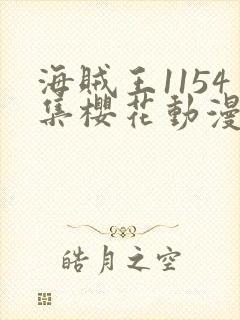 海賊王1154
集櫻花動漫
皓月之空